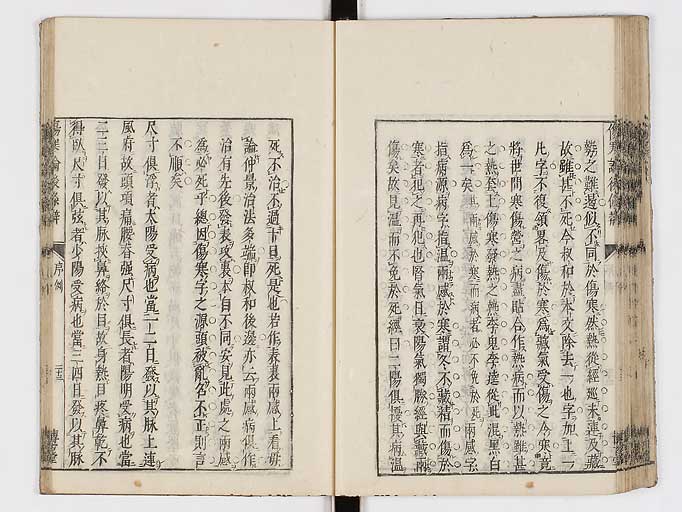 勢之難邊似不同於傷寒然熱從經厄未連及藏
故雖甚不死今叔和於本文除去一也字加上一
凡字不復領畧及傷於寒為臟氣受傷之今寒竟
將世間寒傷營之病盡貼合作熱病而以熱雖甚
之熱登于傷寒發熱之熱李鬼李逵從此混黑白
為一矣兩感於寒而病者必不免於死兩感字
指病源病字指溫兩感於寒謂冬不藏精而傷於
寒者犯之再犯也腎氣日衰陽氣獨勝經與藏兩
傷矣故見溫而不免於死經曰二陽俱擾其病溫
死不治不過十日死是也若作表裏兩感上看毋
論仲景治法條端即叔和後邊亦云兩感病俱作
治有先後發表攻裏本自不同安見此處之兩感
為必死乎總因傷寒字之源頭被亂名不正則言
不順矣
尺寸俱浮者太陽受病也當一二日發以其脉上連
風府故頭項痛腰脊强尺寸俱長者陽明受病也當
二三日發以其脉挾鼻絡於目故身熱目疼鼻乾不
得臥尺寸俱弦者少陽受病也當三四日發以其脉
傷寒論後條辨
序例